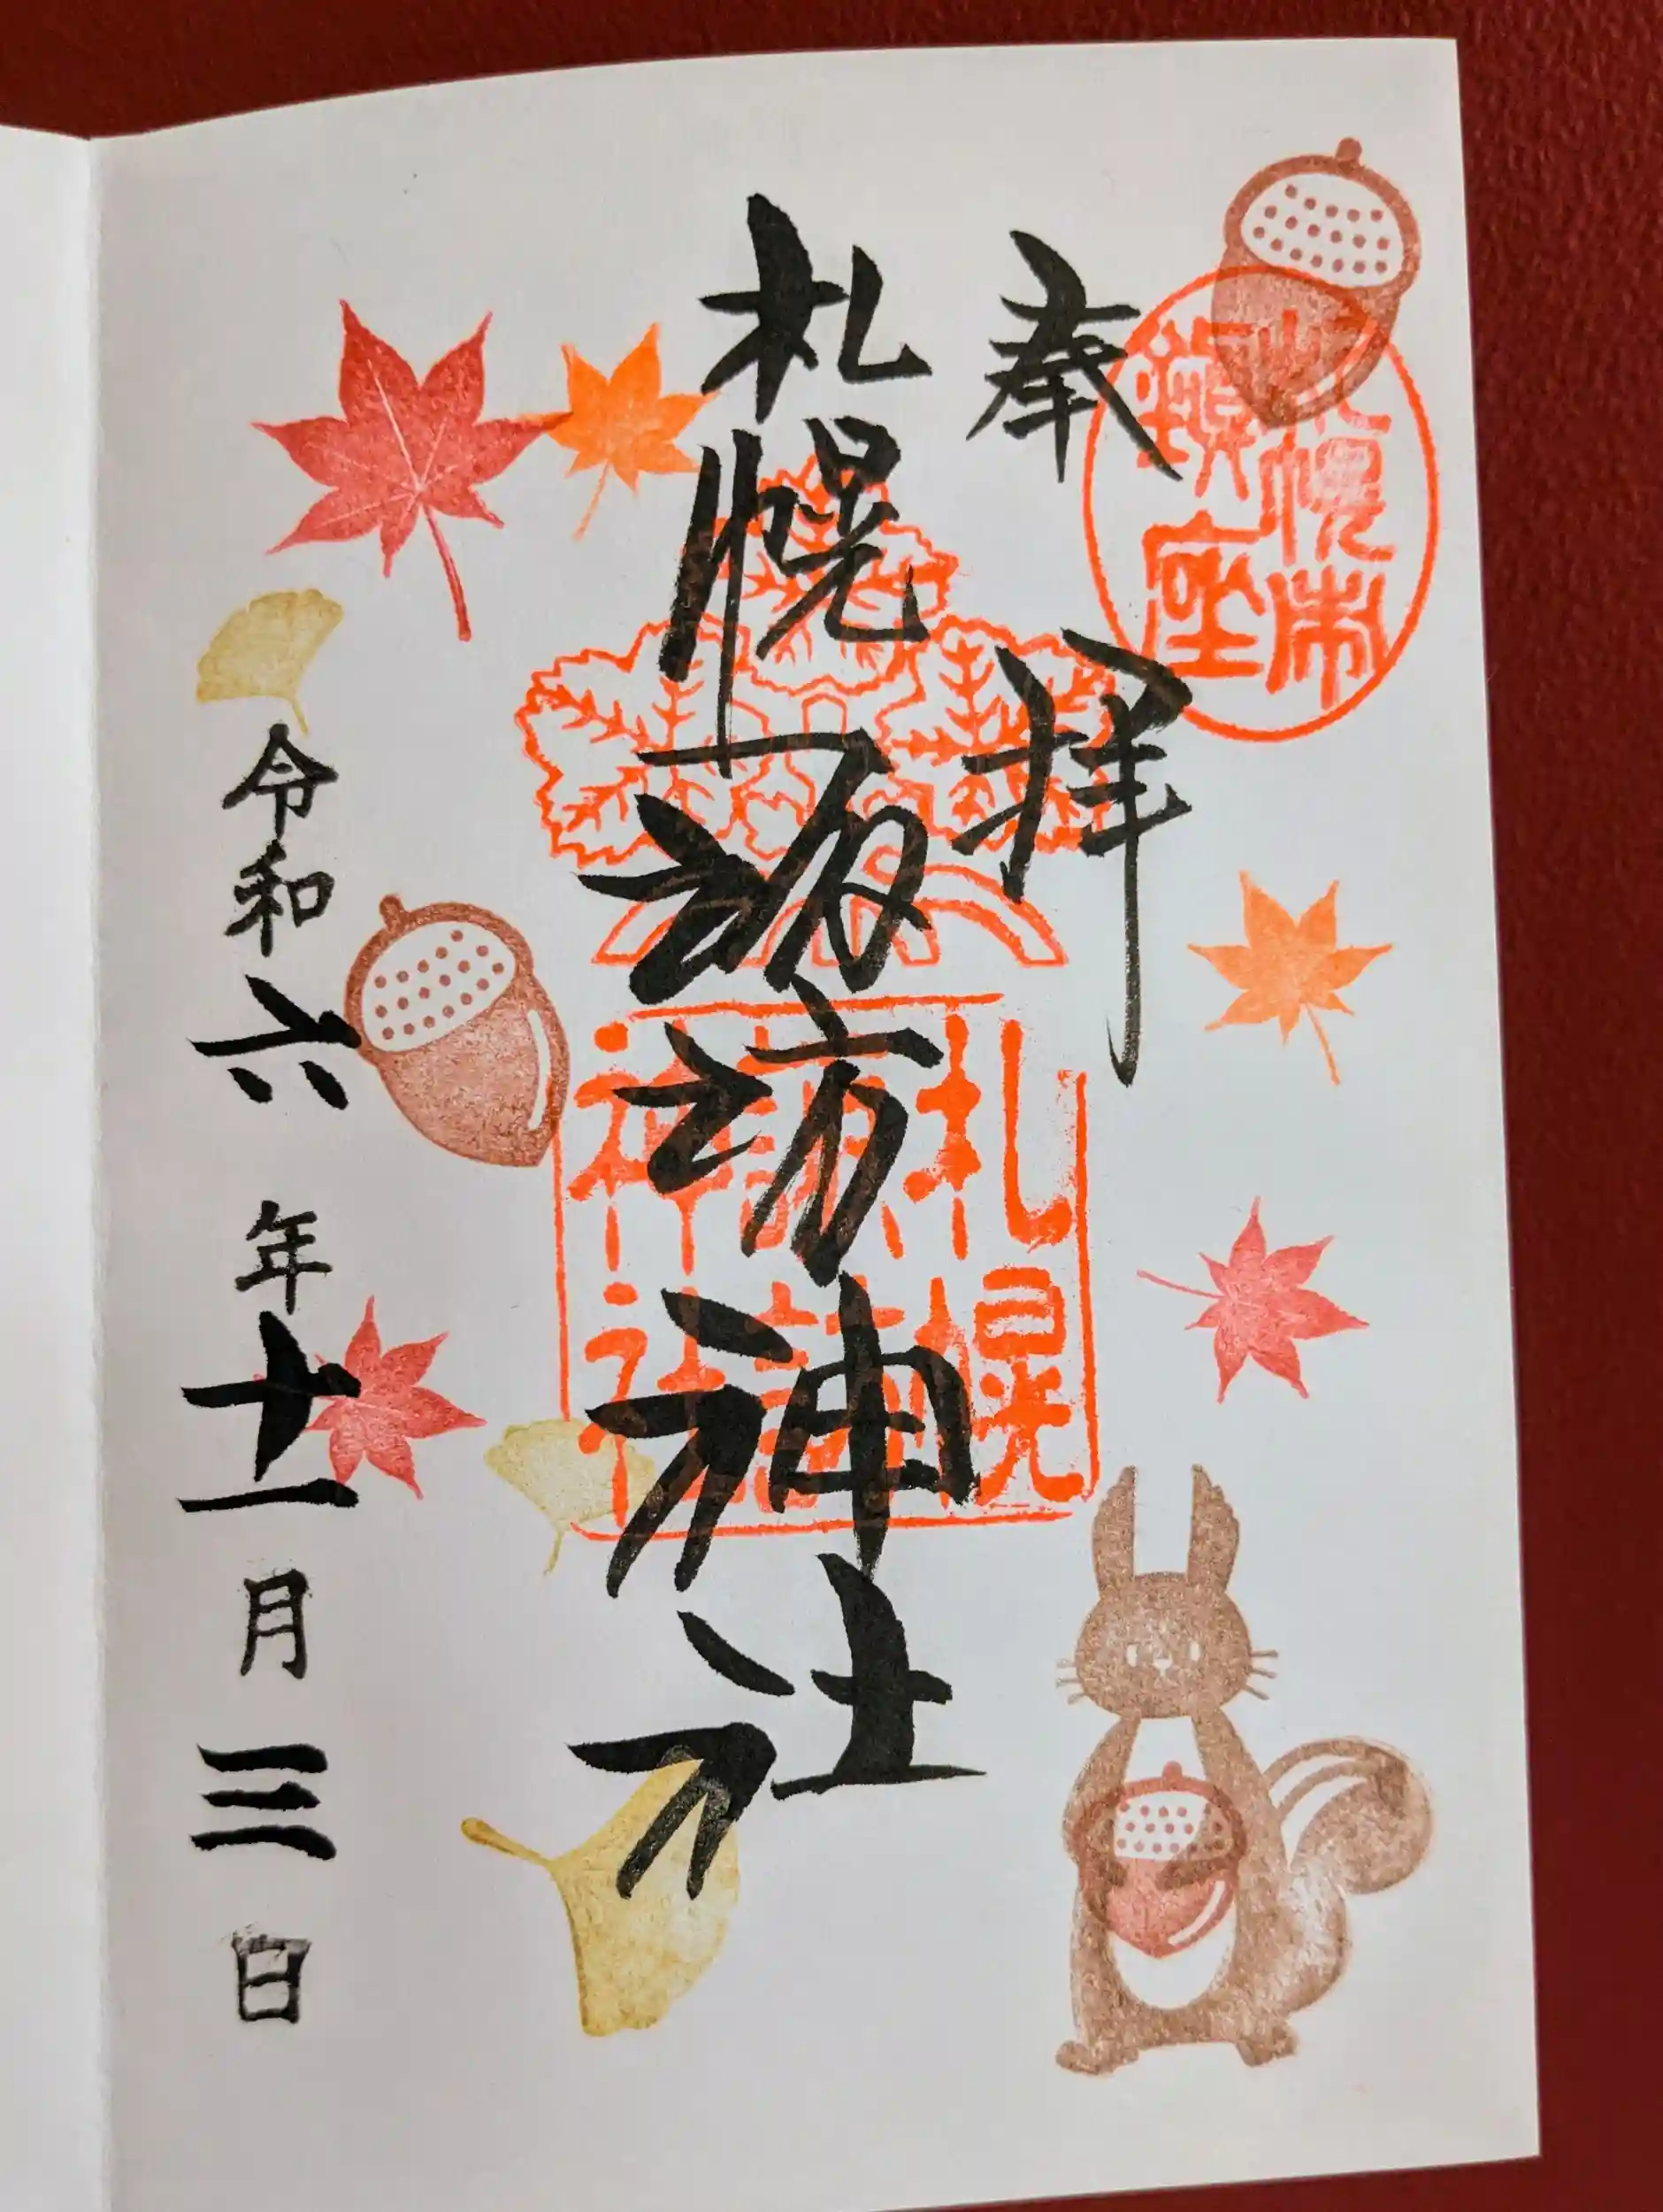 奉拝
札幌市
鎮座
札幌諏訪神社
札幌
諏訪
神社
令和六年十一月三日